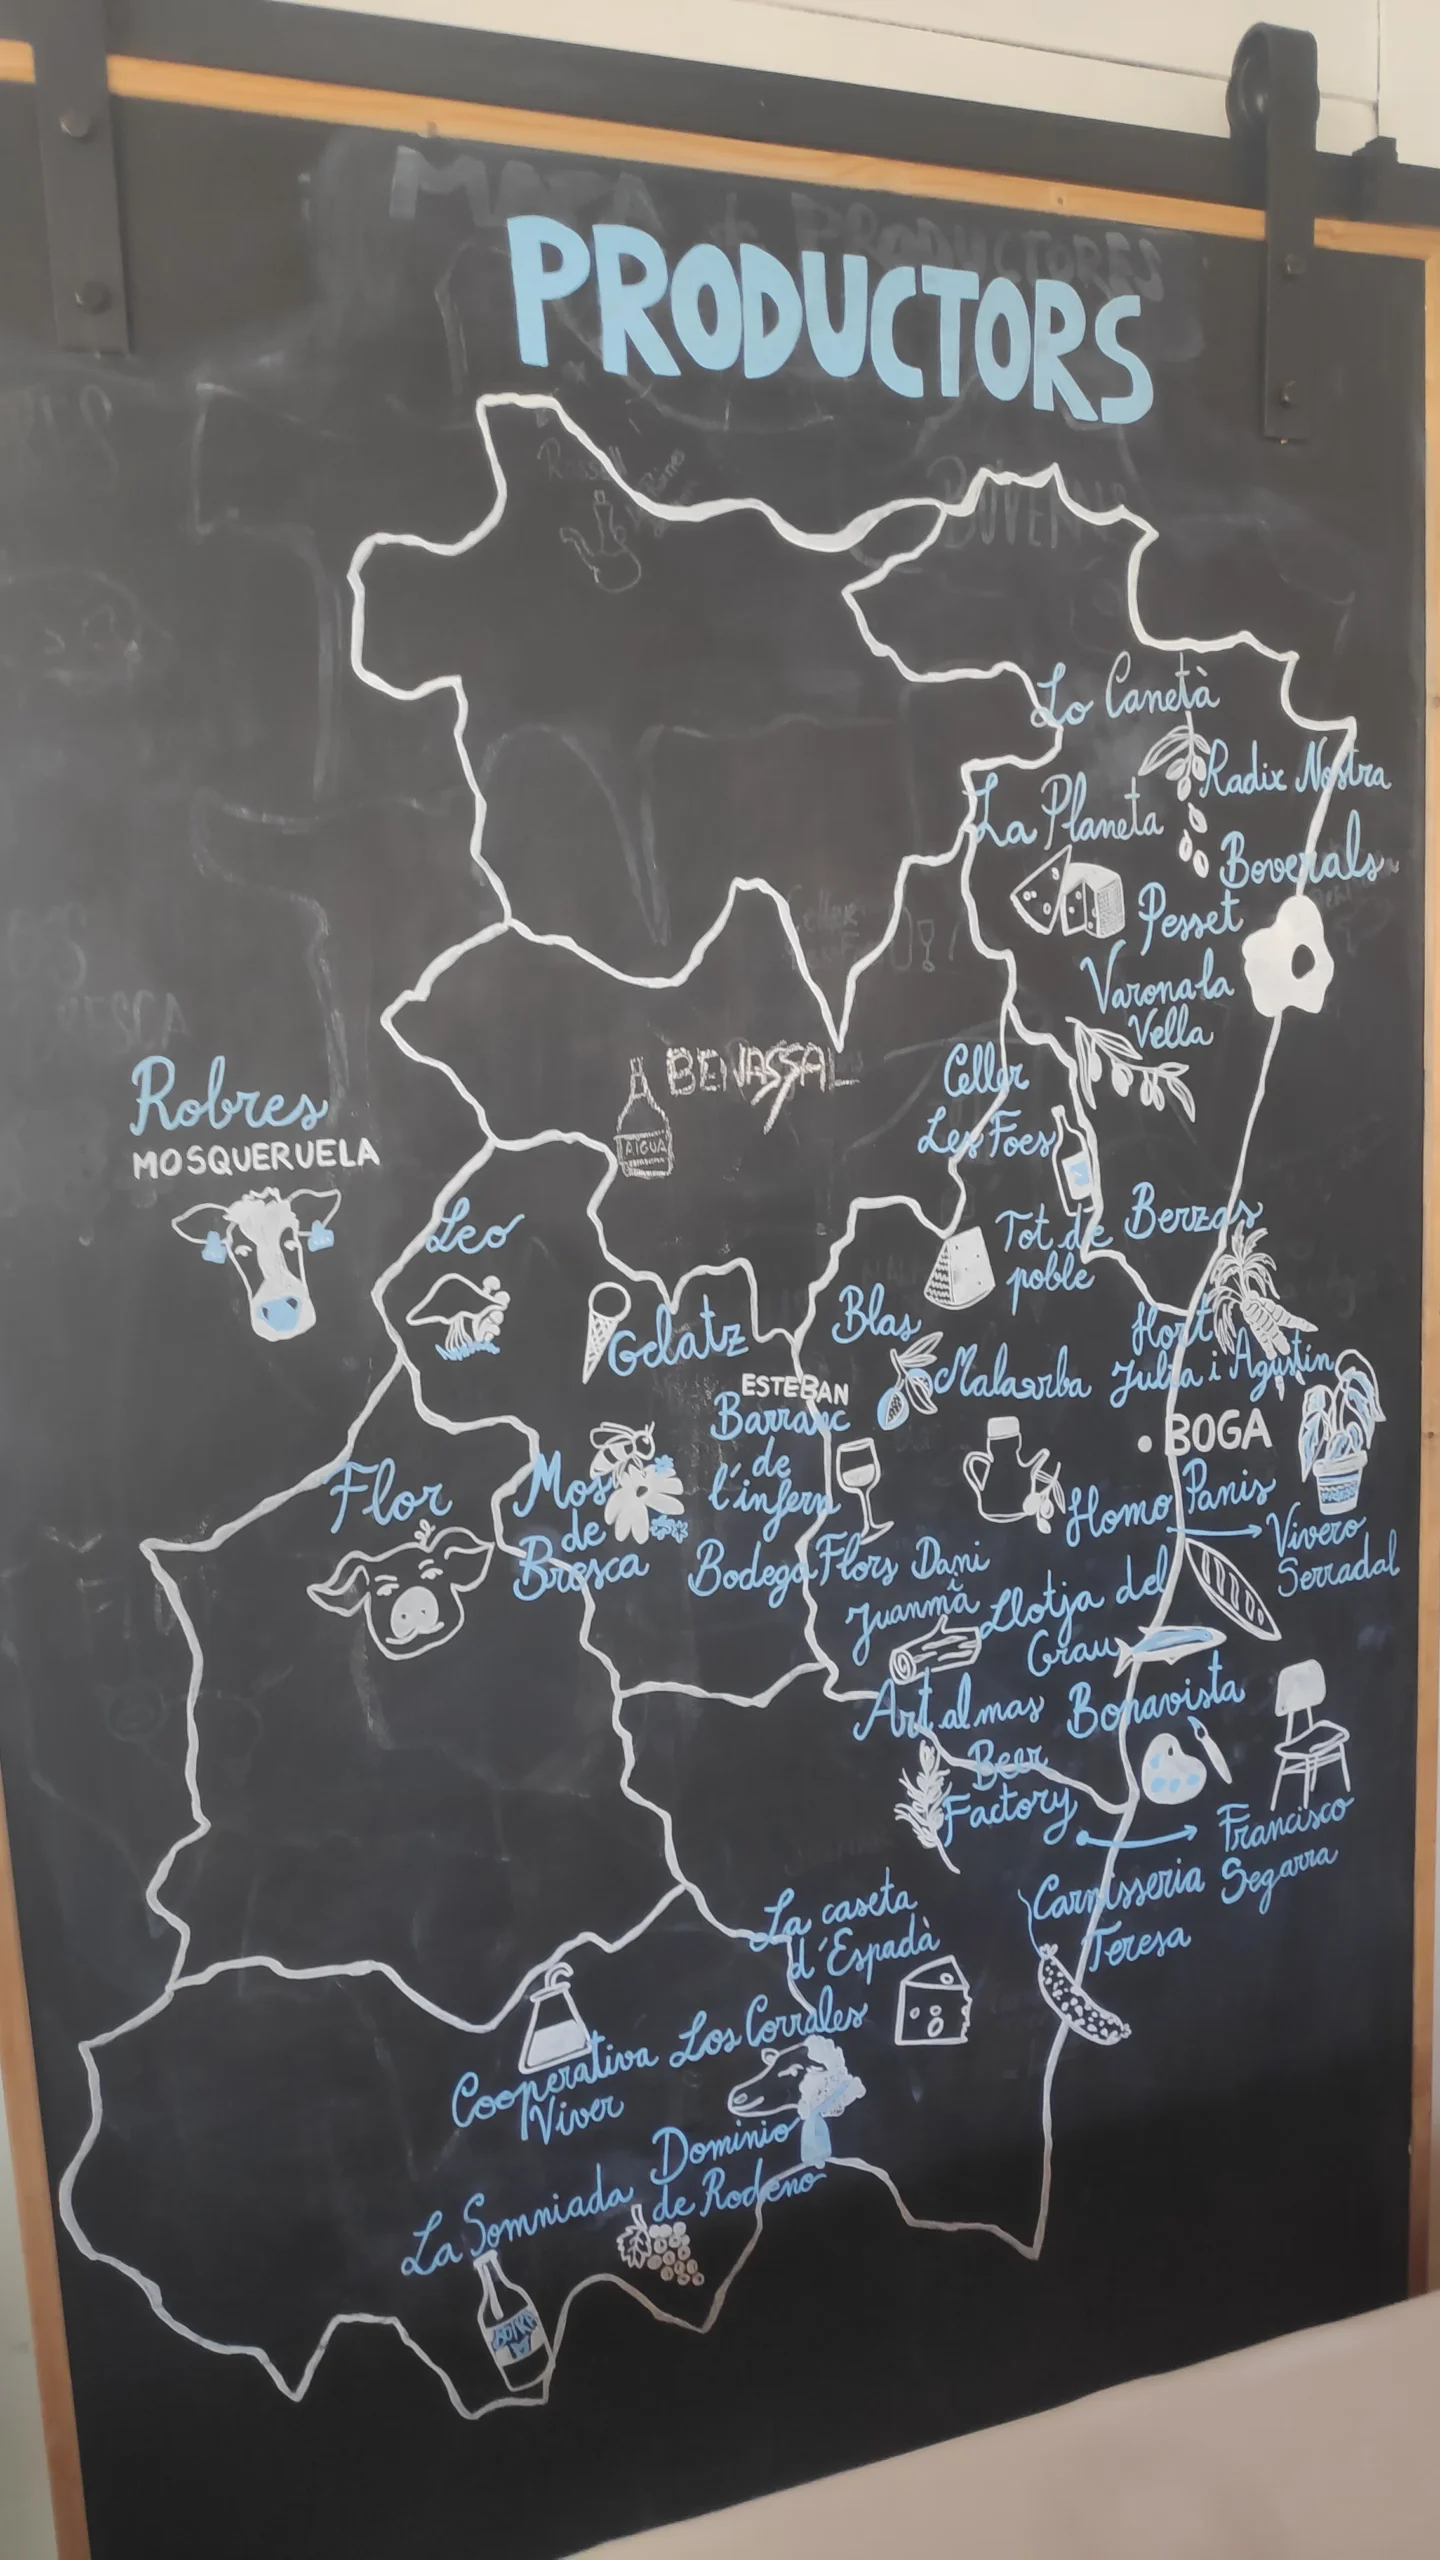 PRODUCTORS
Lo Canetà
Radix Nostra
La Planeta
Boverals
Pesset
Varona la
Vella
BENASSAL
AIGUA
Celler
Les Foes
Robres
MOSQUERUELA
Leo
Tot de
poble
Berzas
Blas
Gelatz
Hort
Julia i Agustín
Malaerba
ESTEBAN
Barranc
de
l'infern
BOGA
Flor
Mos
de
Bresca
Homo Panis
Vivero
Serradal
Bodega Flors
Dani
i
Juanma
Llotja del
Grau
Art almas
Bonavista
Beer
Factory
Francisco
Segarra
Carnisseria
Teresa
La caseta
d'Espadà
Los Corrales
Cooperativa
Viver
Dominio
de Rodeno
La Somniada